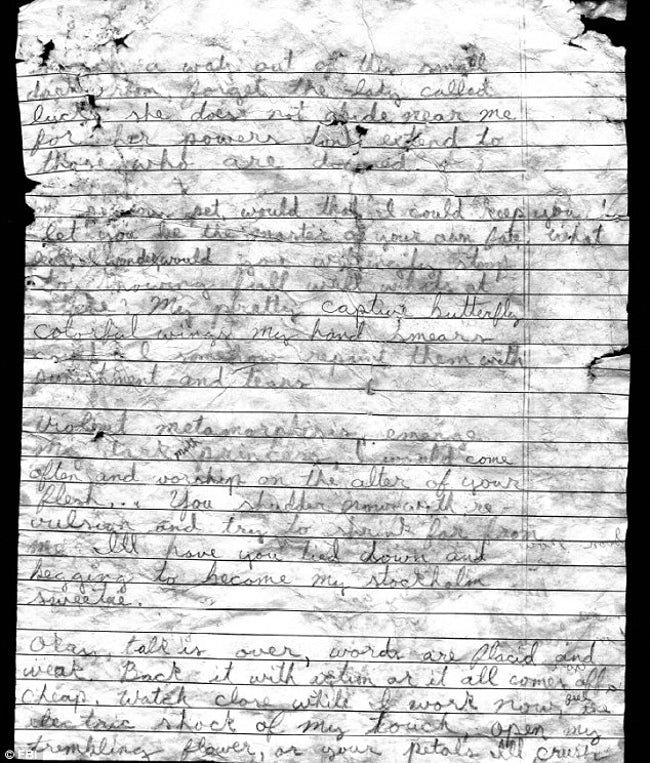 a way out of this small
dark room, forget the lady called
luck she does not abide near me
for her powers don't extend to
those who are dreaded.
pet would that I could keep you
let you be the master of your own fate, what
I wonder would your
knowing full well what's at
My pretty captive butterfly
colorful wings my hand smears
I somehow repaint them with
punishment and tears
violent metamorphosis, emerge
my dark moth princess, I would come
often and worship on the alter of your
flesh... You shudder now with re-
vulsion and try to shrink far from
me. I'll have you tied down and
begging to become my stockholm
sweetie.
Okay, talk is over, words are placid and
weak. Back it with action or it all comes off
cheap. Watch close while I work now, feel the
electric shock of my touch, open my
trembling flower, or your petals I'll crush
© FBI